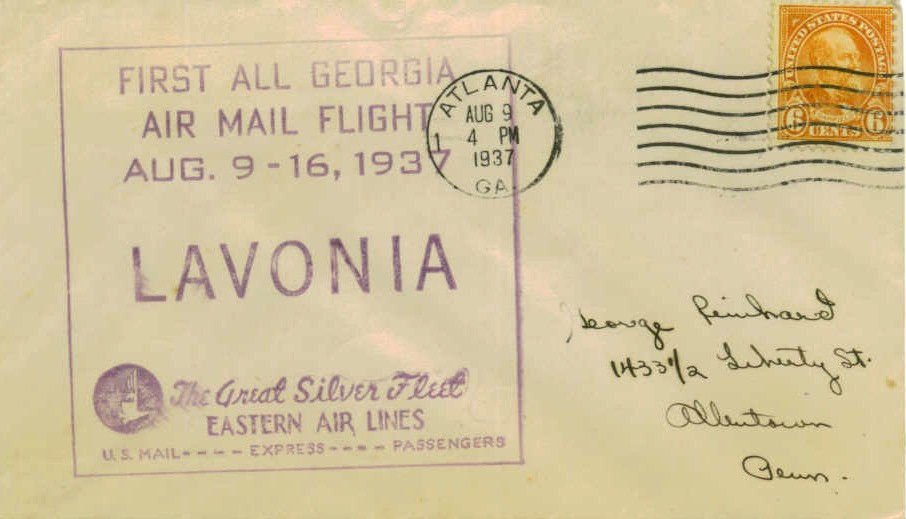 FIRST ALL GEORGIA
AIR MAIL FLIGHT
AUG. 9 - 16, 1937
LAVONIA
The Great Silver Fleet
EASTERN AIR LINES
U.S. MAIL - - - - EXPRESS - - - - PASSENGERS
ATLANTA
AUG 9
1 4 PM
1937
GA.
UNITED STATES POSTAGE
6 CENTS 6
George Reinhard
1433 1/2 Liberty St.
Allentown
Penn.